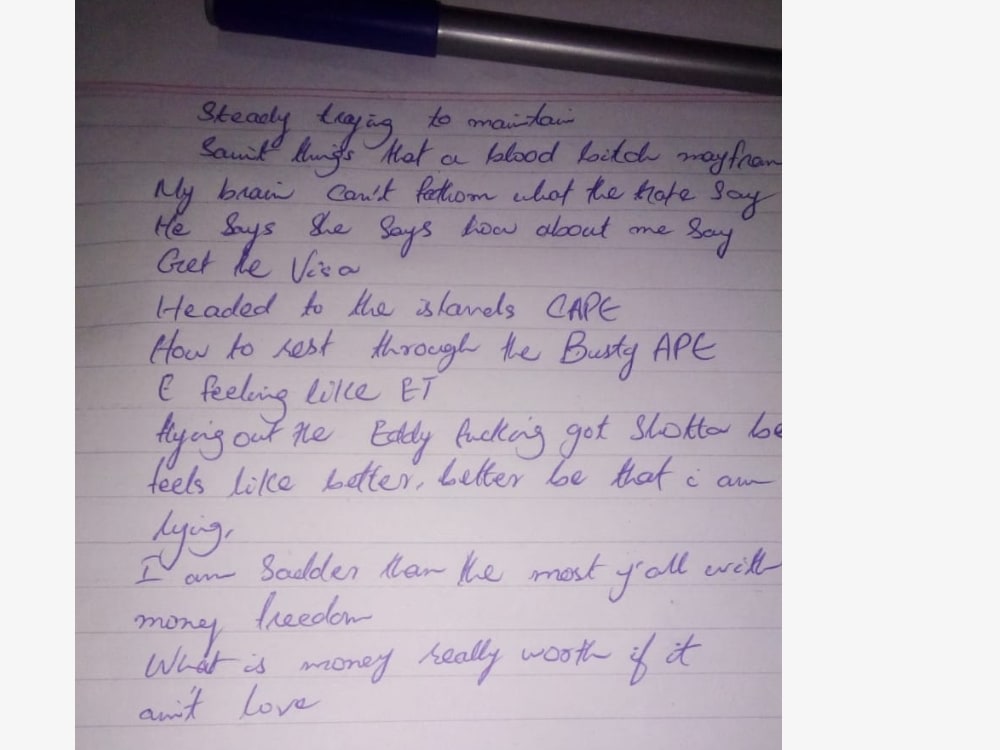 Steady trying to maintain
Saint things that a blood bitch mayfran
My brain can't fathom what the hate say
He says she says how about me say
Get the Visa
Headed to the islands CAPE
How to rest through the Busty APE
E feeling like ET
flying out the Eddy fucking got Shotta be
feels like better, better be that i am
lying,
I am Sadder than the most y'all with
money freedom
What is money really worth if it
ain't love